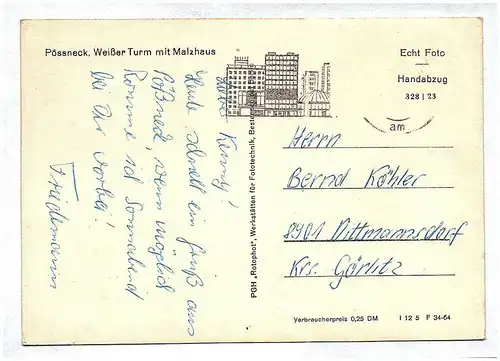 Pössneck, Weißer Turm mit Malzhaus
Echt Foto
Handabzug
328 | 23
am
Lieber Kenny!
Heute schnell ein Gruß aus
Pößneck, wenn möglich
komme ich Sonnabend
bei Dir vorbei!
Friedemann
PGH „Rotophot“, Werkstätten für Fototechnik, Beste
Herrn
Bernd Köhler
8901 Dittmannsdorf
Krs. Görlitz
Verbraucherpreis 0,25 DM I 12 5 F 34-64